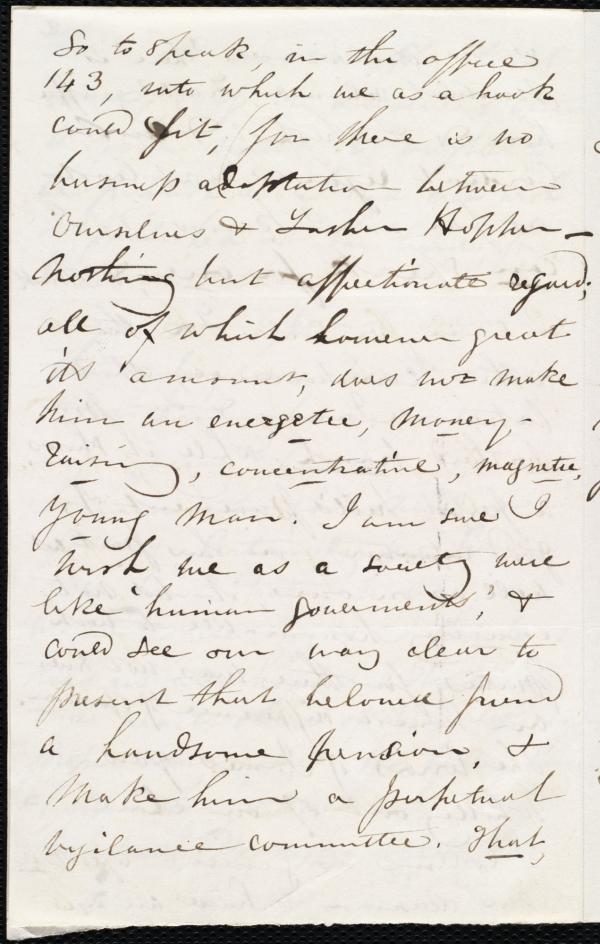 so to speak, in the office
143, into which we as a hook
could fit, for there is no
business adaptation between
ourselves & Hopper –
nothing but affectionate regard;
all of which however great
its amount, does not make
him an energetic, money-
raising, concentrative, magnetic,
young man. I am sure I
wish we as a society were
like 'human goverments', &
could see our way clear to
present that beloved friend
a handsome pension, &
make him a perpetual
vigilance committee. That,